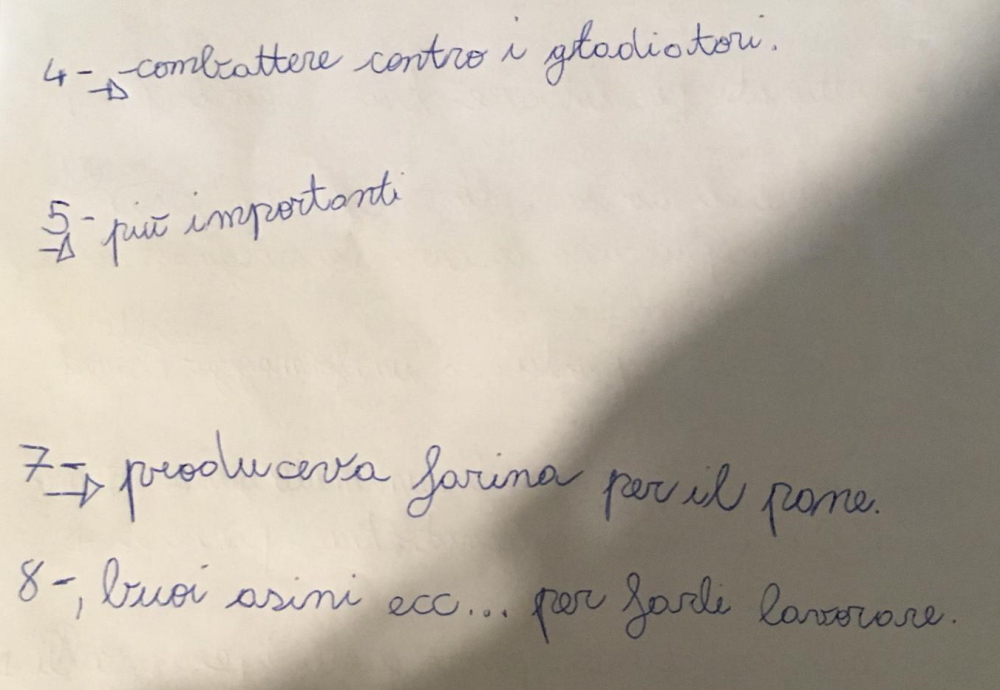 4-→ -combattere contro i gladiatori.
5-→ più importanti
7-→ produceva farina per il pane.
8-, buoi asini ecc... per farli lavorare.